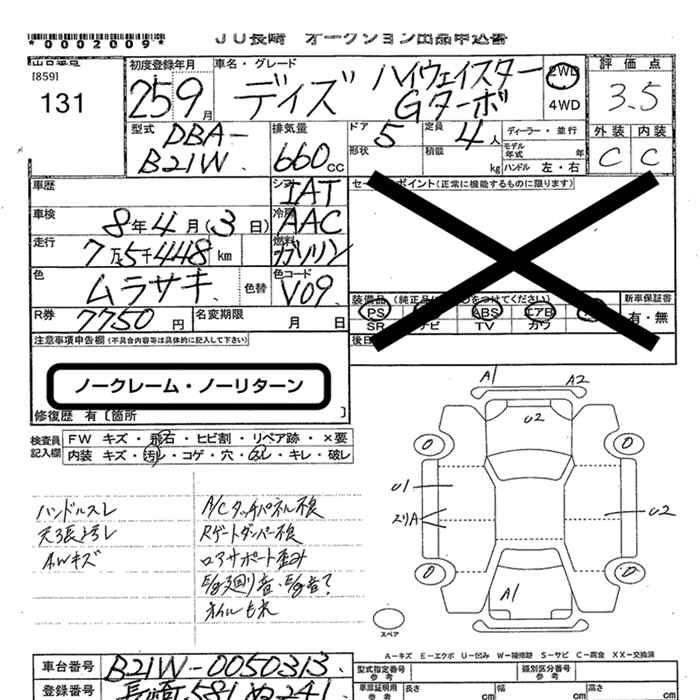 *0002009*
JU長崎 オークション出品申込書
[859]
131
初度登録年月
25 9月
車名・グレード
デイズ ハイウェイスター
Gターボ
2WD
4WD
評価点
3.5
外装 内装
C C
型式
DBA-
B21W
排気量
660cc
ドア 5
形状
定員 4人
積載 kg
ディーラー・並行
モデル年式 年
ハンドル 左・右
車歴
シフト IAT
セールスポイント(正常に機能するものに限ります)
車検
8年4月(3日)
冷房 AAC
走行
7万5千448km
燃料 ガソリン
色
ムラサキ
色替
色コード
V09
装備品 (純正品に○をつけてください)
新車保証書
有・無
PS ABS エアB
SR ナビ TV カワ
R券
7750円
名変期限
月 日
注意事項申告欄(不具合内容等は具体的に記入して下さい)
ノークレーム・ノーリターン
修復歴 有 [箇所 ]
検査員記入欄
FW キズ・飛石・ヒビ割・リペア跡・×要
内装 キズ・汚レ・コゲ・穴・スレ・キレ・破レ
ハンドルスレ
天張ヨゴレ
AWキズ
A/Cタッチパネル不良
Rゲートダンパー不良
ロアサポート歪み
E/g廻り音・E/g音?
オイルもれ
A1 A2
U2
0 0
U1
エリA
U2
0 0
A1
スペア
A-キズ E-エクボ U-凹み W-補修跡 S-サビ C-腐食 XX-交換済
車台番号
B21W-0050313
型式指定番号
参考
類別区分番号
参考
登録番号
長崎581 ぬ241
車庫証明用
参考
長さ cm
幅 cm
高さ cm